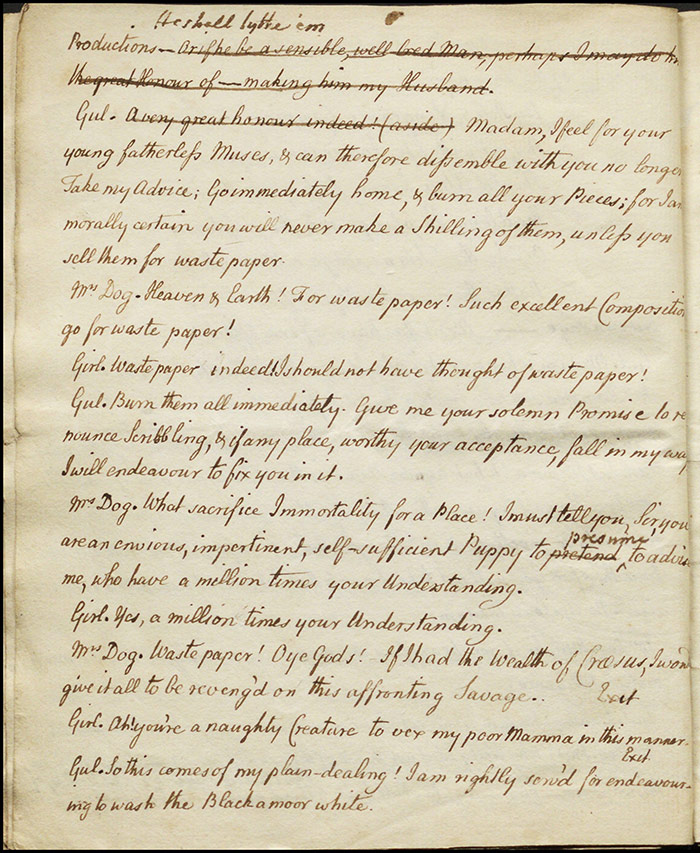 He shall lythe 'em
Productions — Or if he be a sensible, well bred Man, perhaps I may do him
the great Honour of — making him my Husband.
Gul. A very great honour indeed! (aside) Madam, I feel for your
young fatherless Muses, & can therefore dissemble with you no longer
Take my Advice; Go immediately home, & burn all your Pieces; for I am
morally certain you will never make a Shilling of them, unless you
sell them for waste paper.
Mrs Dog. Heaven & Earth! For waste paper! Such excellent Composition
go for waste paper!
Girl. Waste paper indeed! I should not have thought of waste paper!
Gul. Burn them all immediately. Give me your solemn Promise to re
nounce Scribbling, & if any place, worthy your acceptance, fall in my way
I will endeavour to fix you in it.
Mrs Dog. What sacrifice Immortality for a Place! I must tell you, Sir, you
presume
are an envious, impertinent, self-sufficient Puppy to pretend to advise
me, who have a million times your Understanding.
Girl. Yes, a million times your Understanding.
Mrs Dog. Waste paper! O ye Gods! If I had the Wealth of Crœsus, I wou'd
give it all to be reveng'd on this affronting Savage. Exit
Girl. Ah! you're a naughty Creature to vex my poor Mamma in this manner.
Exit
Gul. So this comes of my plain-dealing! I am rightly serv'd for endeavour-
ing to wash the Blackamoor white.